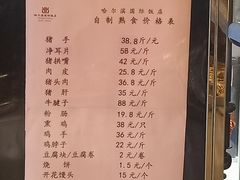 哈尔滨国际饭店
自制熟食价格表
猪手 38.8斤/元
净耳片 58元/斤
猪拱嘴 42元/斤
肉皮 25.8元/斤
猪头肉 36.8元/斤
猪肚 35元/斤
牛腱子 88元/斤
粉肠 19.8元/斤
熏鸡 38元/只
鸡手 36元/斤
鸡脖子 22元/斤
豆腐块/豆腐卷 2元/卷
烧饼 1.5元/个
开花馒头 15元/个